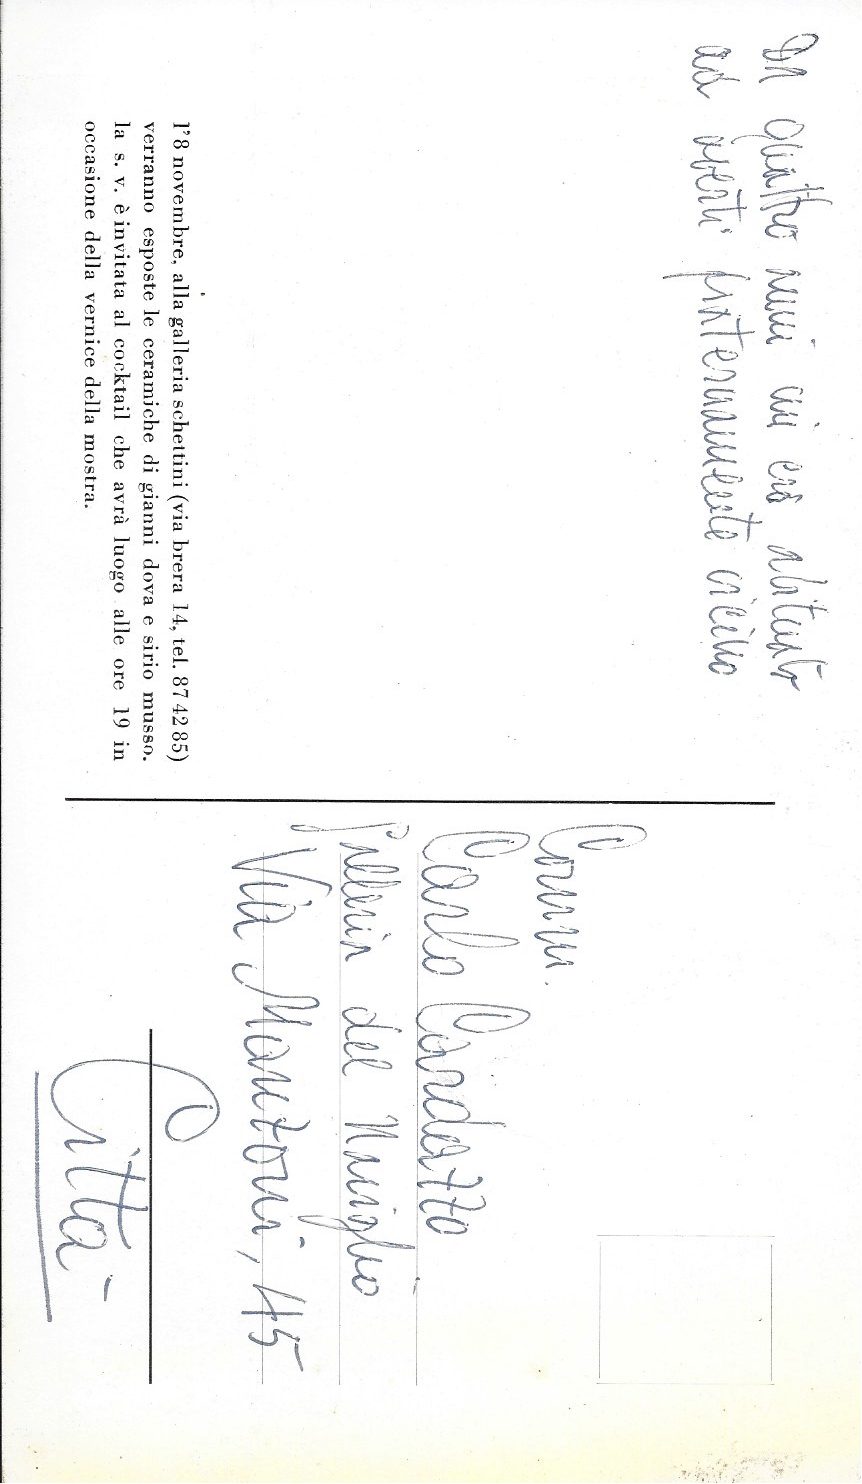 Da quattro anni mi ero abituato
ad averti fraternamente vicino
l'8 novembre, alla galleria schettini (via brera 14, tel. 87 42 85)
verranno esposte le ceramiche di gianni dova e sirio musso.
la s. v. è invitata al cocktail che avrà luogo alle ore 19 in
occasione della vernice della mostra.
Comm.
Carlo Cardazzo
Galleria del Naviglio
Via Manzoni, 45
Città